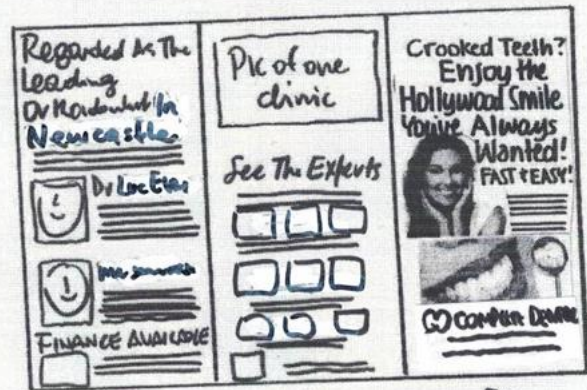 Regarded As The
Leading
In
Newcastle
Dr Luc
FINANCE AVAILABLE
Pic of one
clinic
See The Experts
Crooked Teeth?
Enjoy the
Hollywood Smile
You've Always
Wanted!
FAST & EASY!
COMPLETE DENTAL